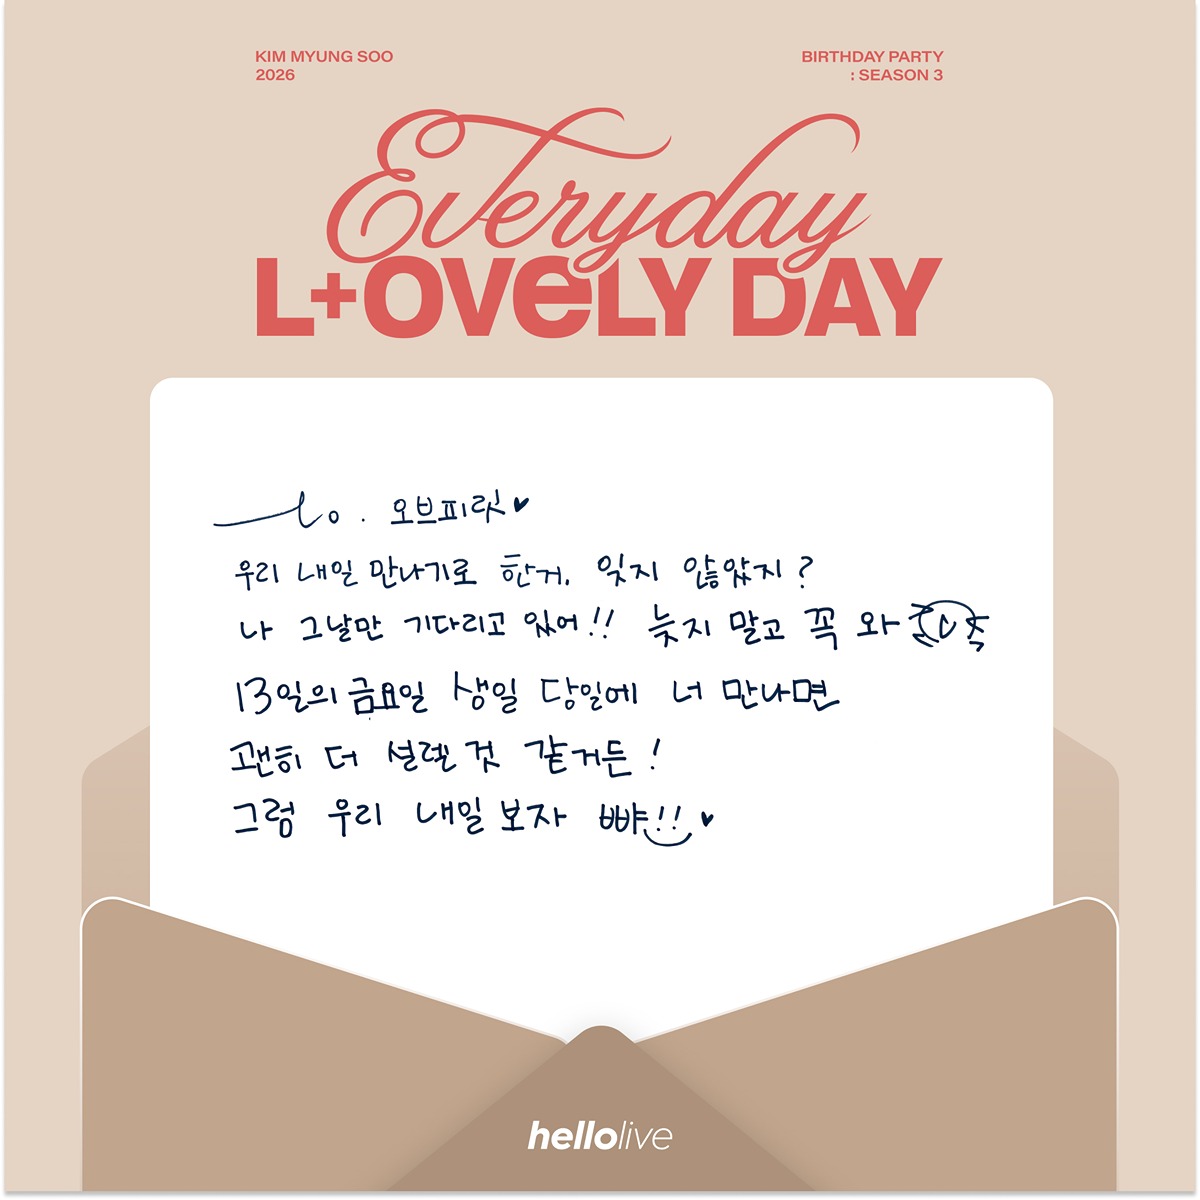 KIM MYUNG SOO
2026
BIRTHDAY PARTY
: SEASON 3
Everyday
L+OVELY DAY
To. 오브피릿♥
우리 내일 만나기로 한거, 잊지 않았지?
나 그날만 기다리고 있어!! 늦지 말고 꼭 와
13일의 금요일 생일 당일에 너 만나면
괜히 더 설렐 것 같거든!
그럼 우리 내일 보자 뺘!! ♥
hellolive